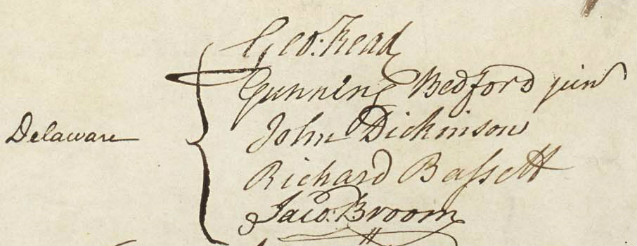 Geo: Read
Gunning Bedford jun
John Dickinson
Delaware
Richard Bassett
Jaco: Broom